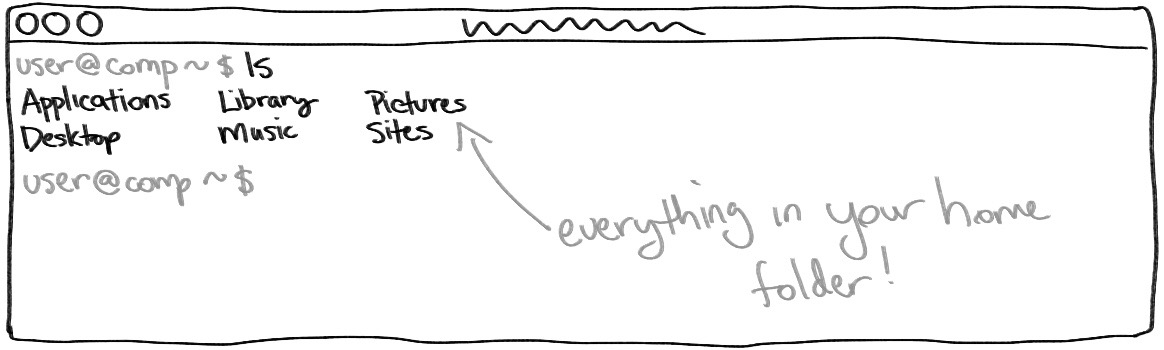 user@comp ~ $ ls
Applications Library Pictures
Desktop Music Sites
user@comp ~ $
everything in your home
folder!